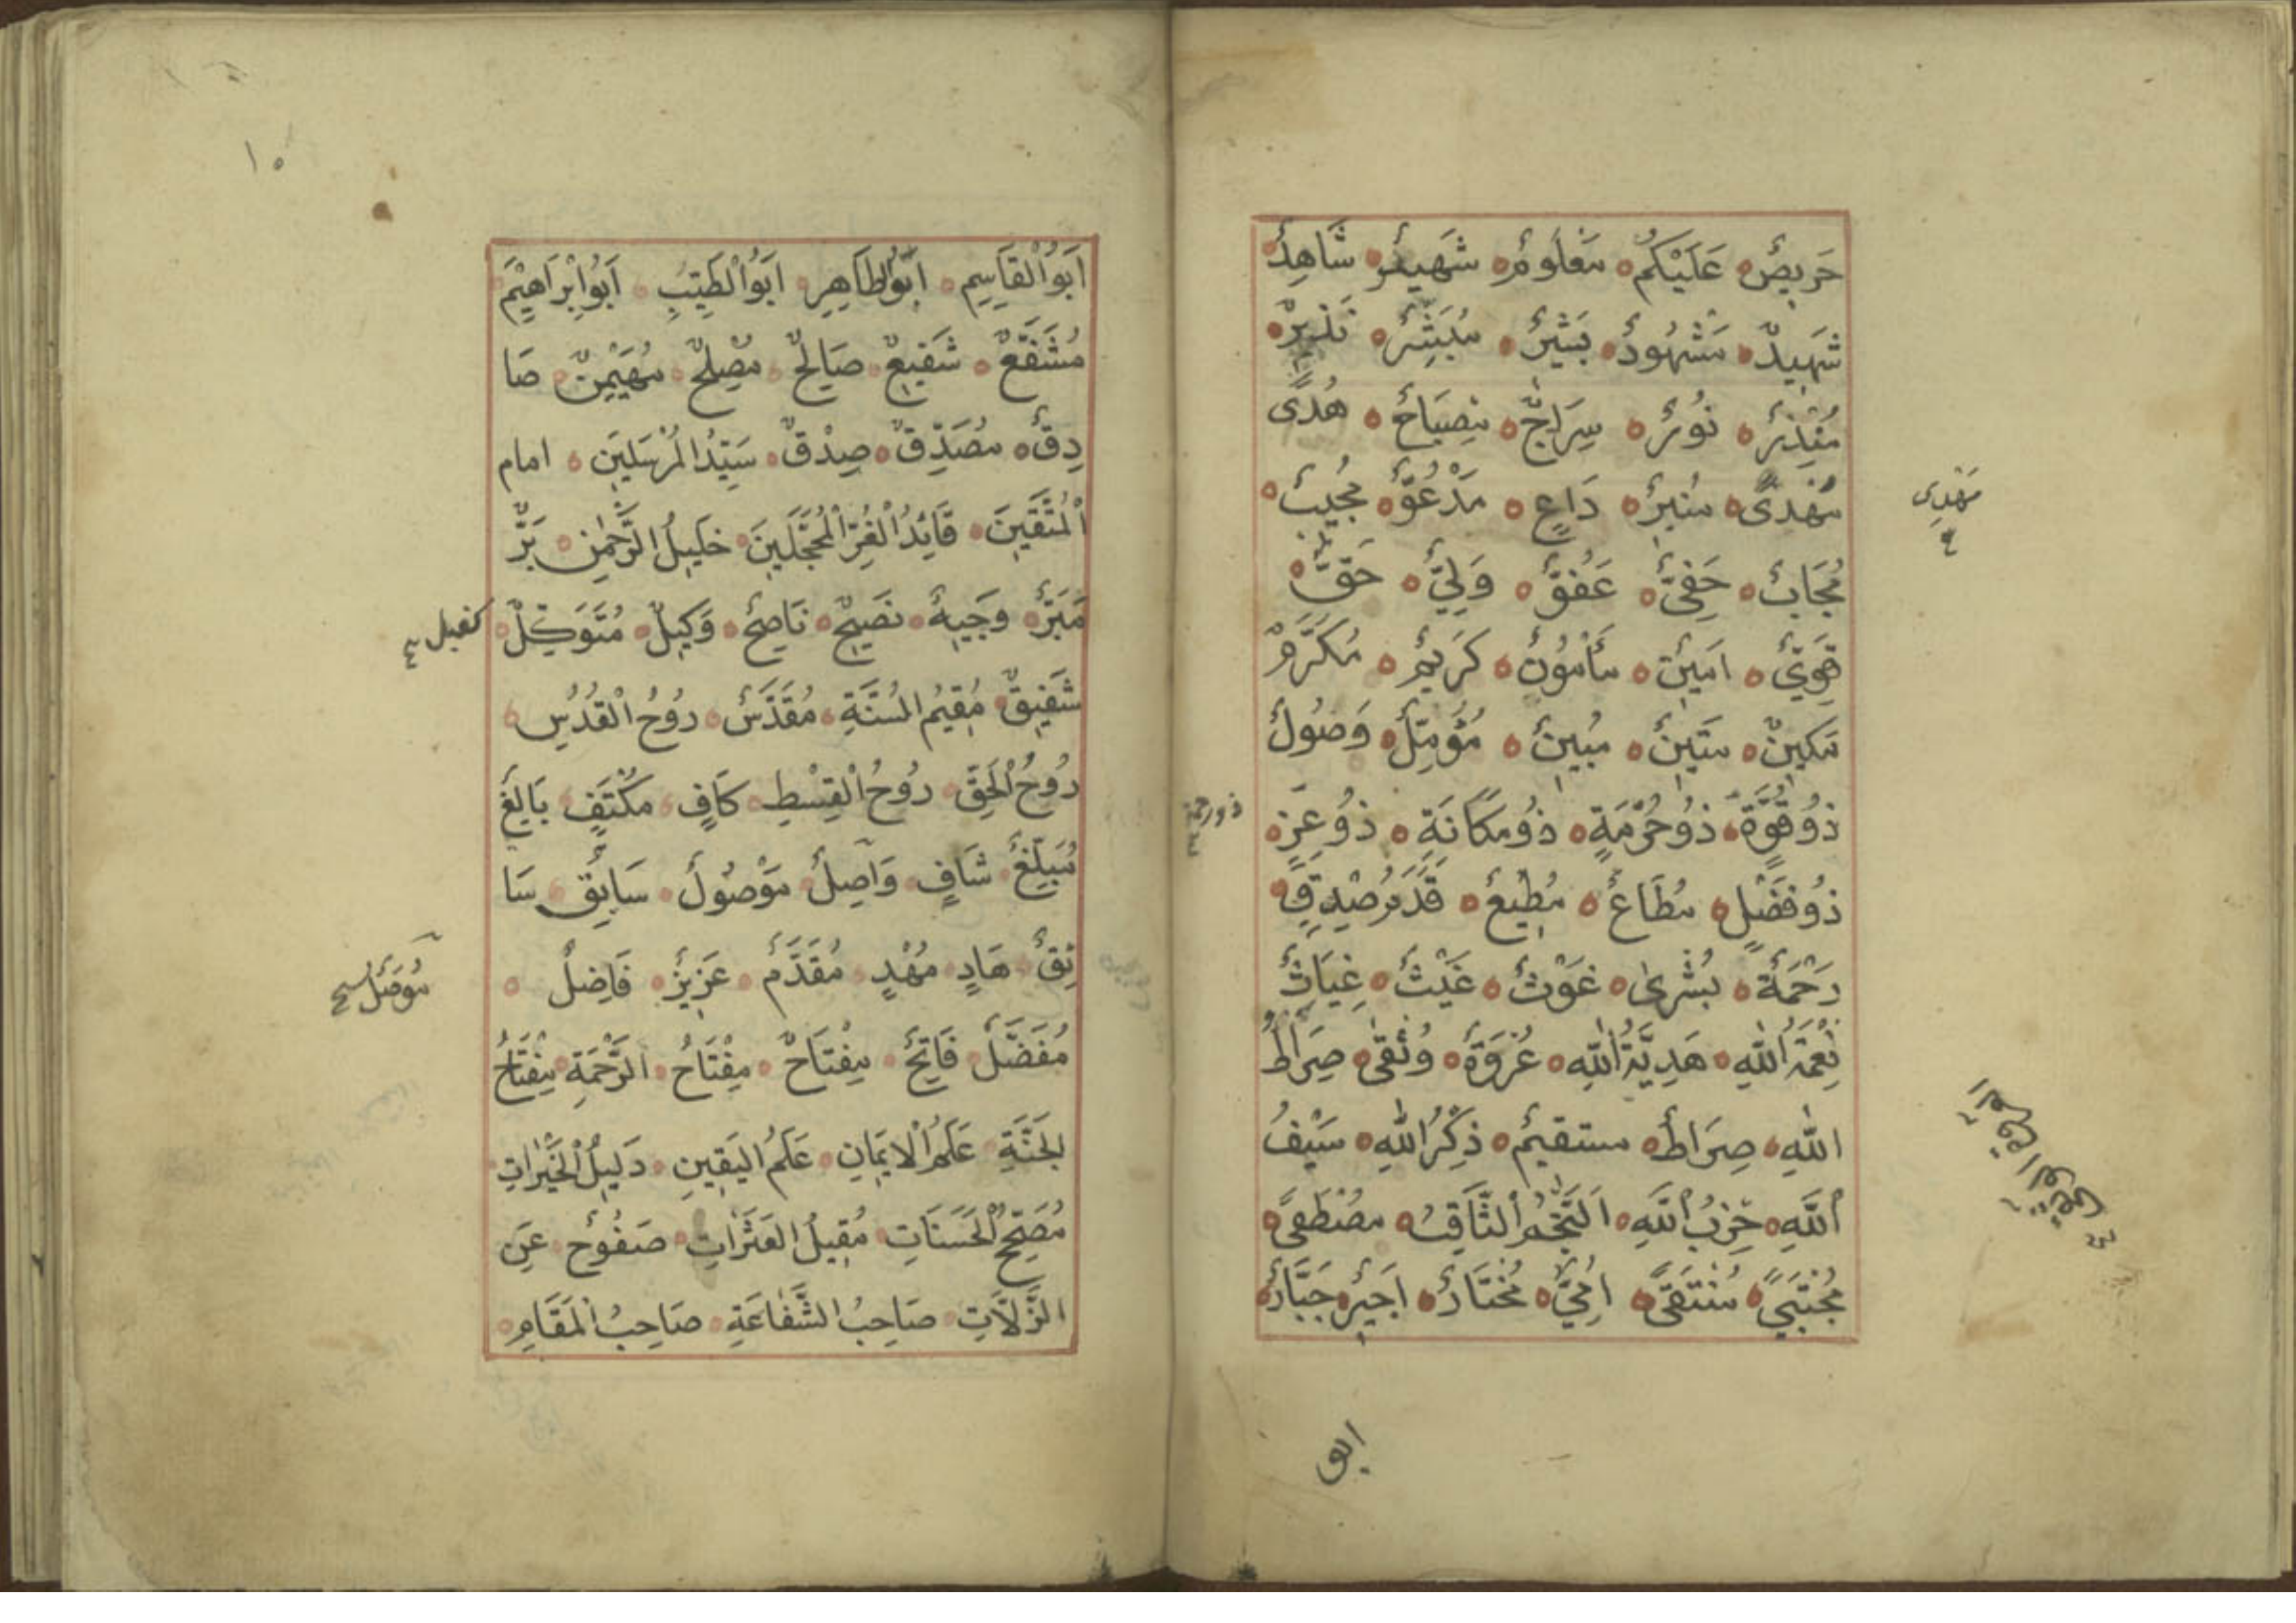 حَرِيصٌ عَلَيْكُمْ مَعْلُومٌ شَهِيرٌ شَاهِدٌ
شَهِيدٌ مَشْهُودٌ بَشِيرٌ مُبَشِّرٌ نَذِيرٌ
مُنْذِرٌ نُورٌ سِرَاجٌ مِصْبَاحٌ هُدًى
مَهْدِىٌّ مُنِيرٌ دَاعٍ مَدْعُوٌّ مُجِيبٌ
مُجَابٌ حَفِىٌّ عَفُوٌّ وَلِيٌّ حَقٌّ
قَوِيٌّ اَمِينٌ مَأْمُونٌ كَرِيمٌ مُكَرَّمٌ
مَكِينٌ مَتِينٌ مُبِينٌ مُؤَمِّلٌ وَصُولٌ
ذُو قُوَّةٍ ذُو حُرْمَةٍ ذُو مَكَانَةٍ ذُو عِزٍّ
ذُو فَضْلٍ مُطَاعٌ مُطِيعٌ قَدَمُ صِدْقٍ
رَحْمَةٌ بُشْرٰى غَوْثٌ غَيْثٌ غِيَاثٌ
نِعْمَةُ اللّٰهِ هَدِيَّةُ اللّٰهِ عُرْوَةٌ وُثْقٰى صِرَاطُ
اللّٰهِ صِرَاطٌ مستقيمٌ ذِكْرُ اللّٰهِ سَيْفُ
اللّٰهِ حِزْبُ اللّٰهِ اَلنَّجْمُ الثَّاقِبُ مصْطَفًى
مُجْتَبًى مُنْتَقًى اُمِّيٌّ مُخْتَارٌ اَجِيرٌ جَبَّارٌ
مَهْدِى
ذو رحمة
ابو
١٥
اَبُو الْقَاسِمِ اَبُو الطَاهِرِ اَبُو الطَيِّبِ اَبُو اِبْرَاهِيْمَ
مُشَفَّعٌ شَفِيعٌ صَالِحٌ مُصْلِحٌ مُهَيْمِنٌ صَا
دِقٌ مُصَدِّقٌ صِدْقٌ سَيِّدُ الْمُرْسَلِينَ امام
الْمُتَّقِينَ قَائِدُ الْغُرِّ الْمُحَجَّلِينَ خَلِيلُ الرَّحْمٰنِ بَرٌّ
مَبَرٌّ وَجِيهٌ نَصِيحٌ نَاصِحٌ وَكِيلٌ مُتَوَكِّلٌ
كفيل
شَفِيقٌ مُقِيمُ السُنَّةِ مُقَدَّسٌ رُوحُ الْقُدُسِ
رُوحُ الْحَقِّ رُوحُ الْقِسْطِ كَافٍ مُكْتَفٍ بَالِغٌ
مُبَلِّغٌ شَافٍ وَاصِلٌ مَوْصُولٌ سَابِقٌ سَا
ئِقٌ هَادٍ مُهْدٍ مُقَدَّمٌ عَزِيزٌ فَاضِلٌ
مُفَضَّلٌ فَاتِحٌ مِفْتَاحٌ مِفْتَاحُ الرَّحْمَةِ مِفْتَاحُ
الجَنَّةِ عَلَمُ الْاِيمَانِ عَلَمُ اليَقِينِ دَلِيلُ الْخَيْرَاتِ
مُصَحِّحُ الْحَسَنَاتِ مُقِيلُ العَثَرَاتِ صَفُوْحٌ عَنِ
الزَّلَّاتِ صَاحِبُ الشَّفَاعَةِ صَاحِبُ الْمَقَامِ